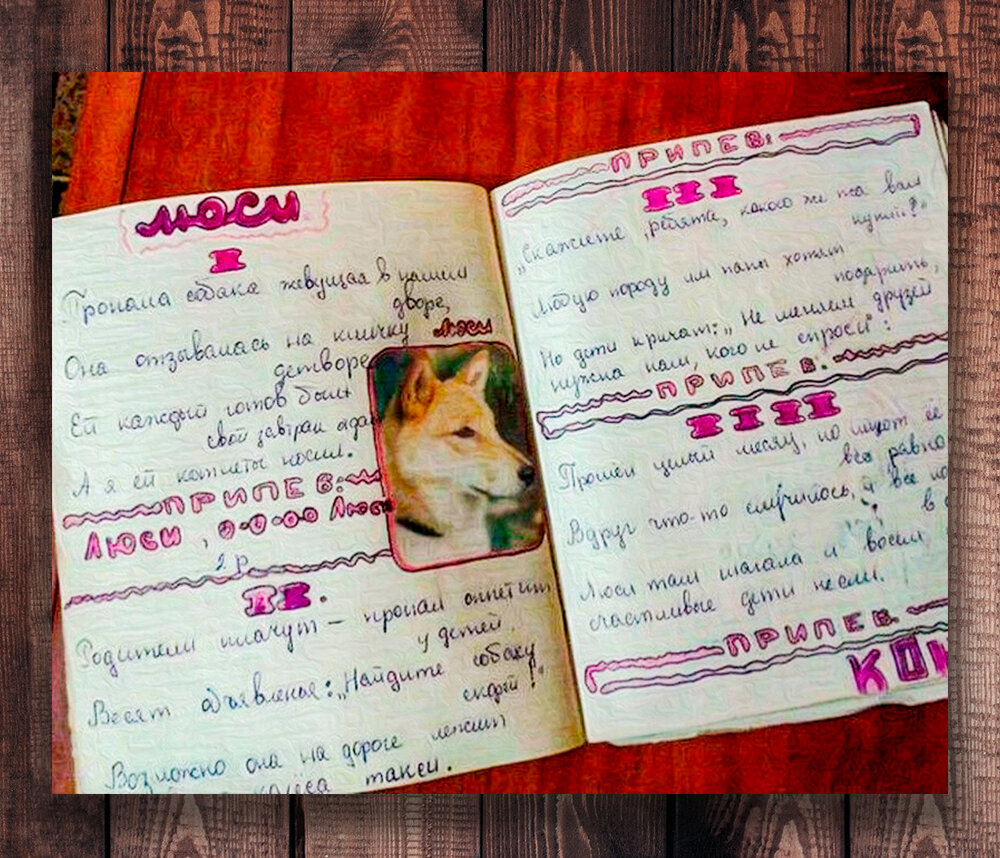 ЛЮСИ
I
Пропала собака живущая в нашем
дворе,
Она отзывалась на кличку Люси
детворе
Ей каждый готов был
свой завтрак отда
А я ей котлеты носил.
ПРИПЕВ:
Люси, о-о-оо Люси
2 р.
II.
Родители плачут – пропал аппетит
у детей.
Весят объявленья: „Найдите собаку
скорей!"
Возможно она на дороге лежит
колёса такси.
ПРИПЕВ:
III
„Скажите, ребята, какого же та вам
нужна?"
Любую породу им папы хотят
подарить,
Но дети кричат: „Не меняем друзей
нужна нам, кого не спроси":
ПРИПЕВ.
IIII
Прошёл целый месяц, но ищут её
всё равно
Вдруг что-то случилось, и все
в
Люси там шагала и восем
счастливые дети несли.
ПРИПЕВ.
КОН